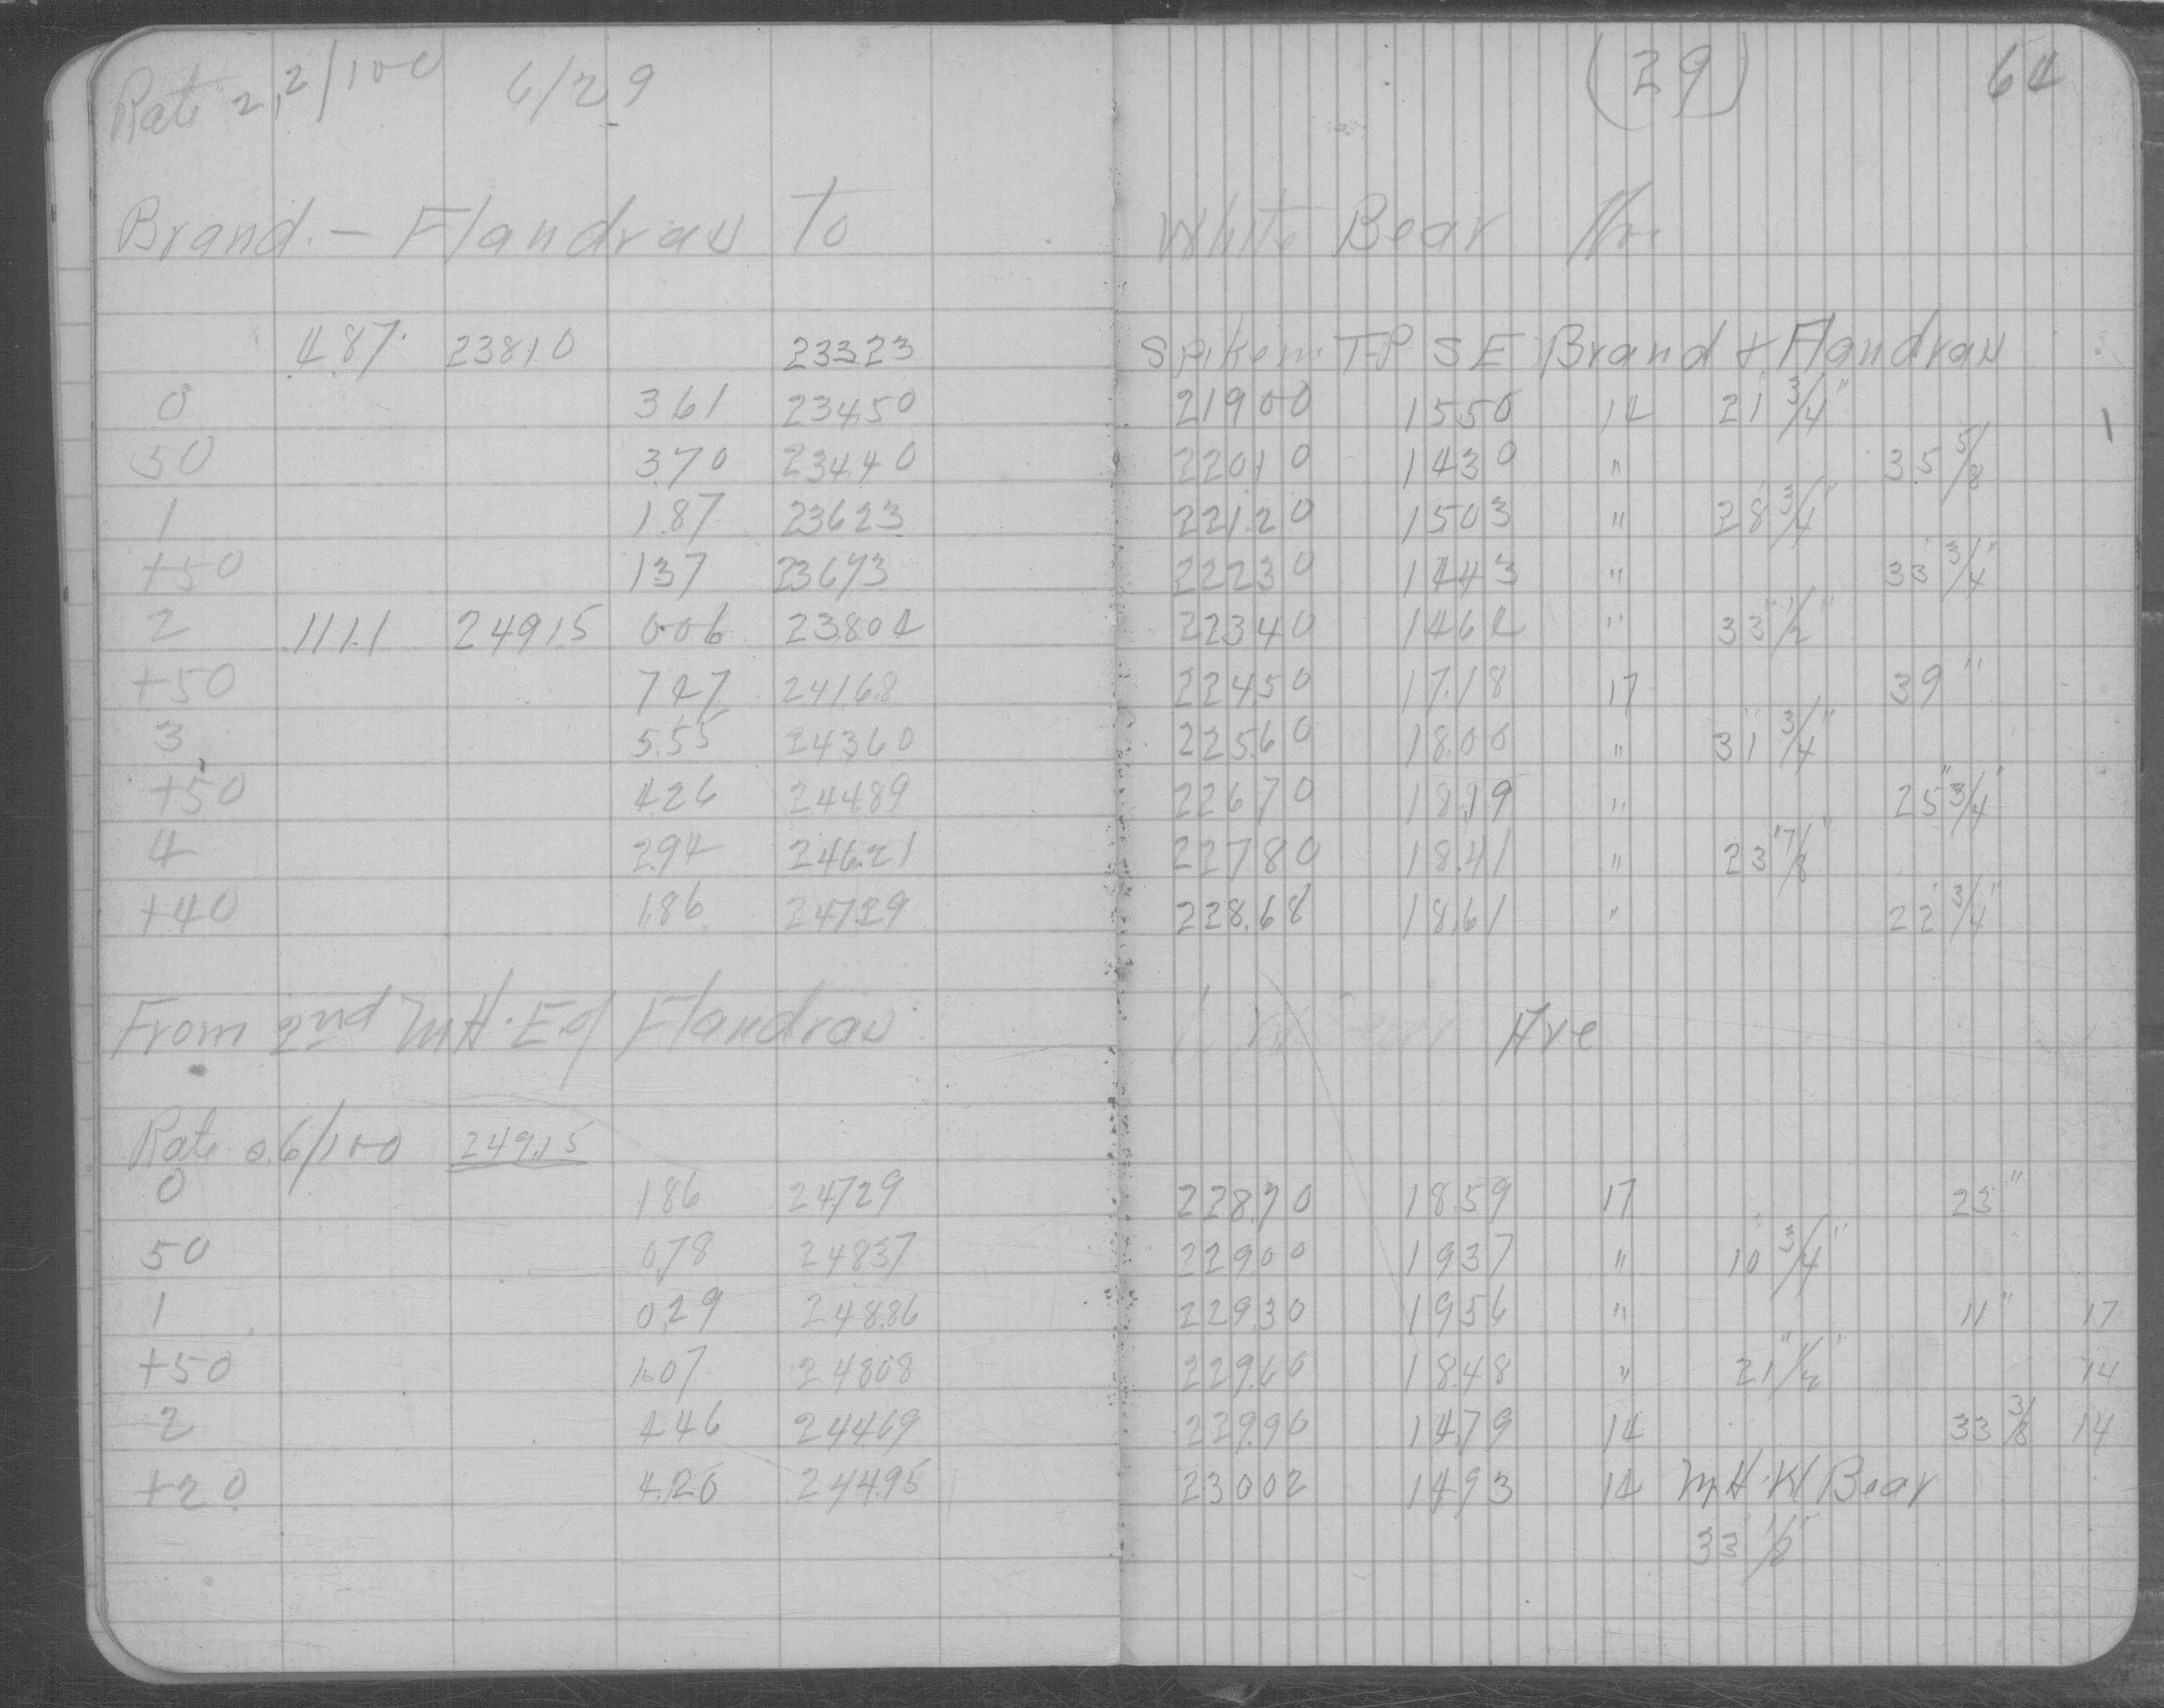 Rate 2.2/100 6/29 (29) 64
Brand. - Flandrau To White Bear Ave
4.87 238.10 233.23 Spike in T-P SE Brand + Flandrau
0 3.61 234.50 219.00 15.50 14 21 3/4"
50 3.70 234.40 220.10 14.30 " 35 5/8
1 1.87 236.23 221.20 15.03 " 28 3/4"
+50 1.37 236.73 222.30 14.43 " 33 3/4"
2 11.11 249.15 0.06 238.04 223.40 14.64 " 33 1/2"
+50 7.47 241.68 224.50 17.18 17 39"
3 5.55 243.60 225.60 18.00 " 31 3/4"
+50 4.26 244.89 226.70 18.19 " 25 3/4"
4 2.94 246.21 227.80 18.41 " 23 7/8"
+40 1.86 247.29 228.68 18.61 " 22 3/4"
From 2nd M.H. E of Flandrau Ave
Rate 0.6/100 249.15
0 1.86 247.29 228.70 18.59 17 23"
50 0.78 248.37 229.00 19.37 " 10 3/4"
1 0.29 248.86 229.30 19.56 " 11" 17
+50 1.07 248.08 229.60 18.48 " 21 1/2" 14
2 4.46 244.69 229.90 14.79 14 33 3/8 14
+20 4.20 244.95 230.02 14.93 14 M.H. W Bear